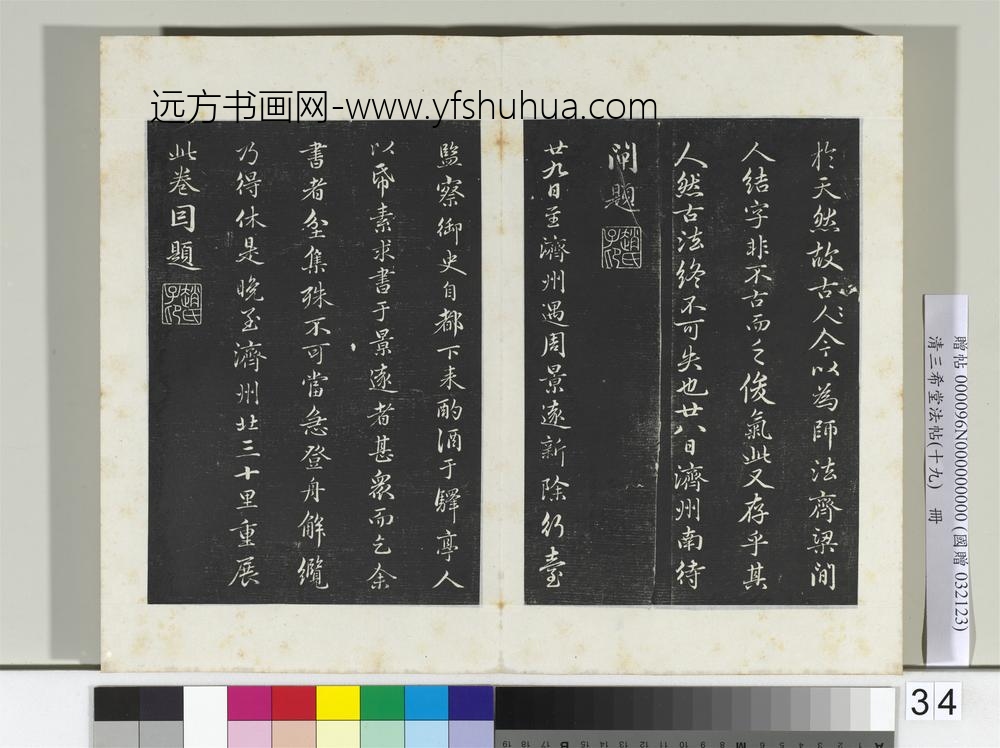 远方书画网-www.yfshuhua.com
於天然故古人今以為師法齊梁間
人結字非不古而乏俊氣此又存乎其
人然古法終不可失也廿八日濟州南待
閘題
趙氏子印
廿九日至濟州遇周景遠新除行臺
監察御史自都下来酌酒于驛亭人
以帋素求書于景遠者甚衆而乞余
書者坌集殊不可當急登舟解纜
乃得休是晚至濟州北三十里重展
此卷因題
趙氏子印
贈帖 000096N000000000 (國贈 032123)
清三希堂法帖(十九) 冊
34